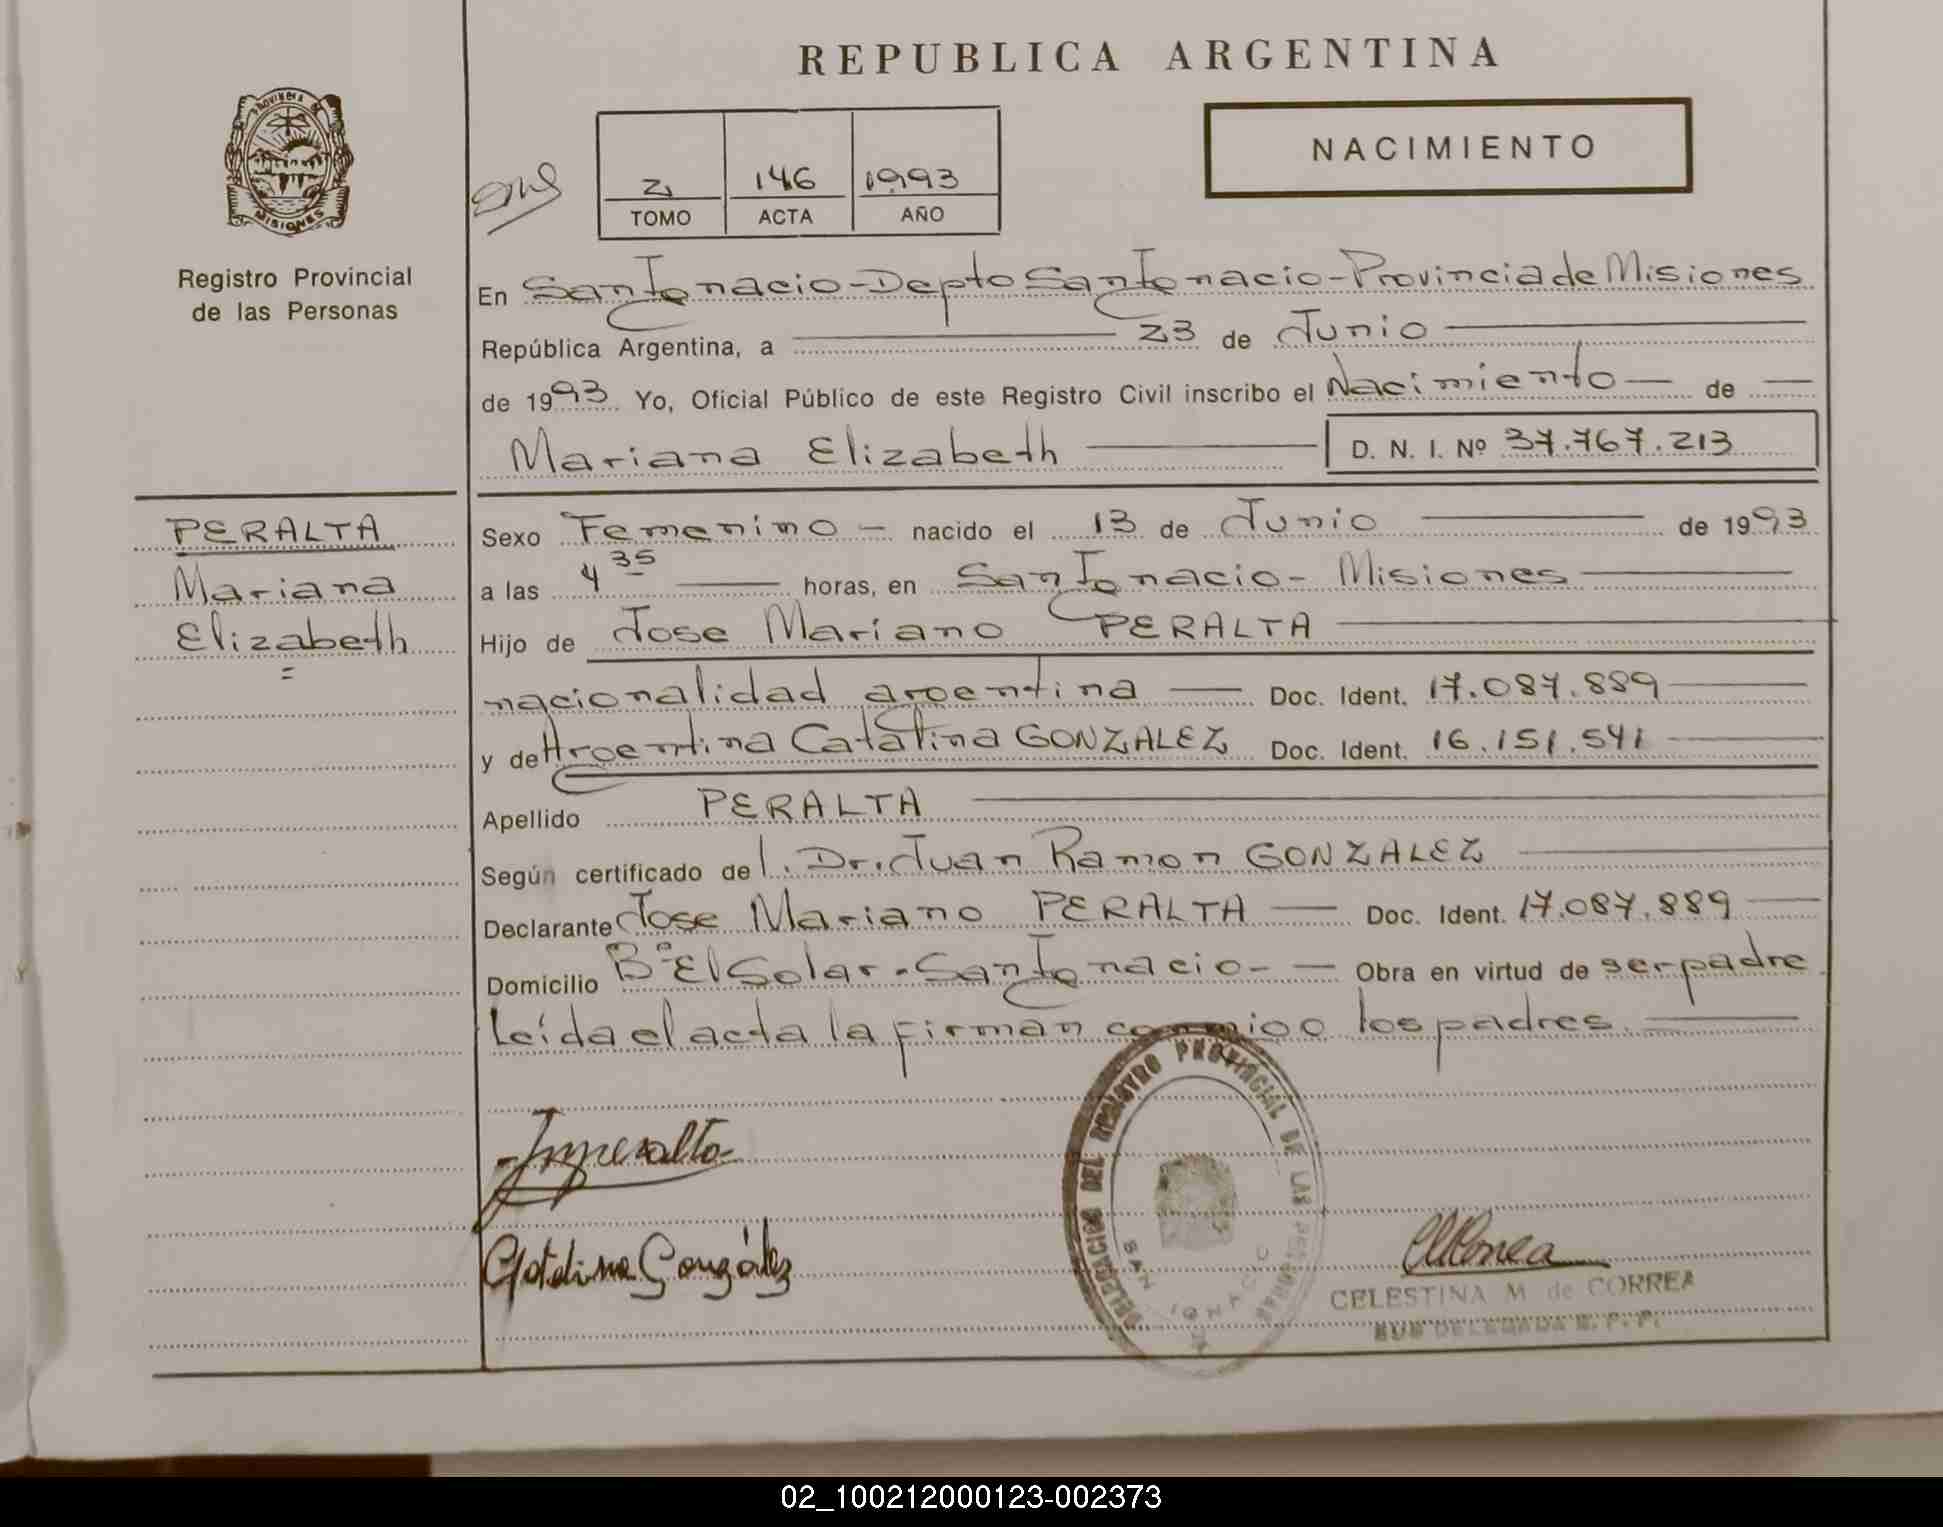 REPUBLICA ARGENTINA
NACIMIENTO
PROVINCIA DE
MISIONES
Registro Provincial
de las Personas
2 146 1993
TOMO ACTA AÑO
En San Ignacio - Depto San Ignacio - Provincia de Misiones
República Argentina, a 23 de Junio
de 1993 Yo, Oficial Público de este Registro Civil inscribo el Nacimiento — de —
Mariana Elizabeth D. N. I. Nº 37.767.213
PERALTA
Mariana
Elizabeth
=
Sexo Femenino - nacido el 13 de Junio de 1993
a las 4 35 horas, en San Ignacio - Misiones
Hijo de Jose Mariano PERALTA
nacionalidad argentina — Doc. Ident. 17.087.889
y de Argentina Catalina GONZALEZ Doc. Ident. 16.151.541
Apellido PERALTA
Según certificado de l. Dr. Juan Ramon GONZALEZ
Declarante Jose Mariano PERALTA — Doc. Ident. 17.087.889
Domicilio Bº El Solar - San Ignacio - — Obra en virtud de ser padre
Leída el acta la firman conmigo los padres.
DELEGACION DEL REGISTRO PROVINCIAL DE LAS PERSONAS
SAN IGNACIO
Jmperalta
Catalina González
CELESTINA M de CORREA
SUB DELEGADA R. P. P.
02_100212000123-002373